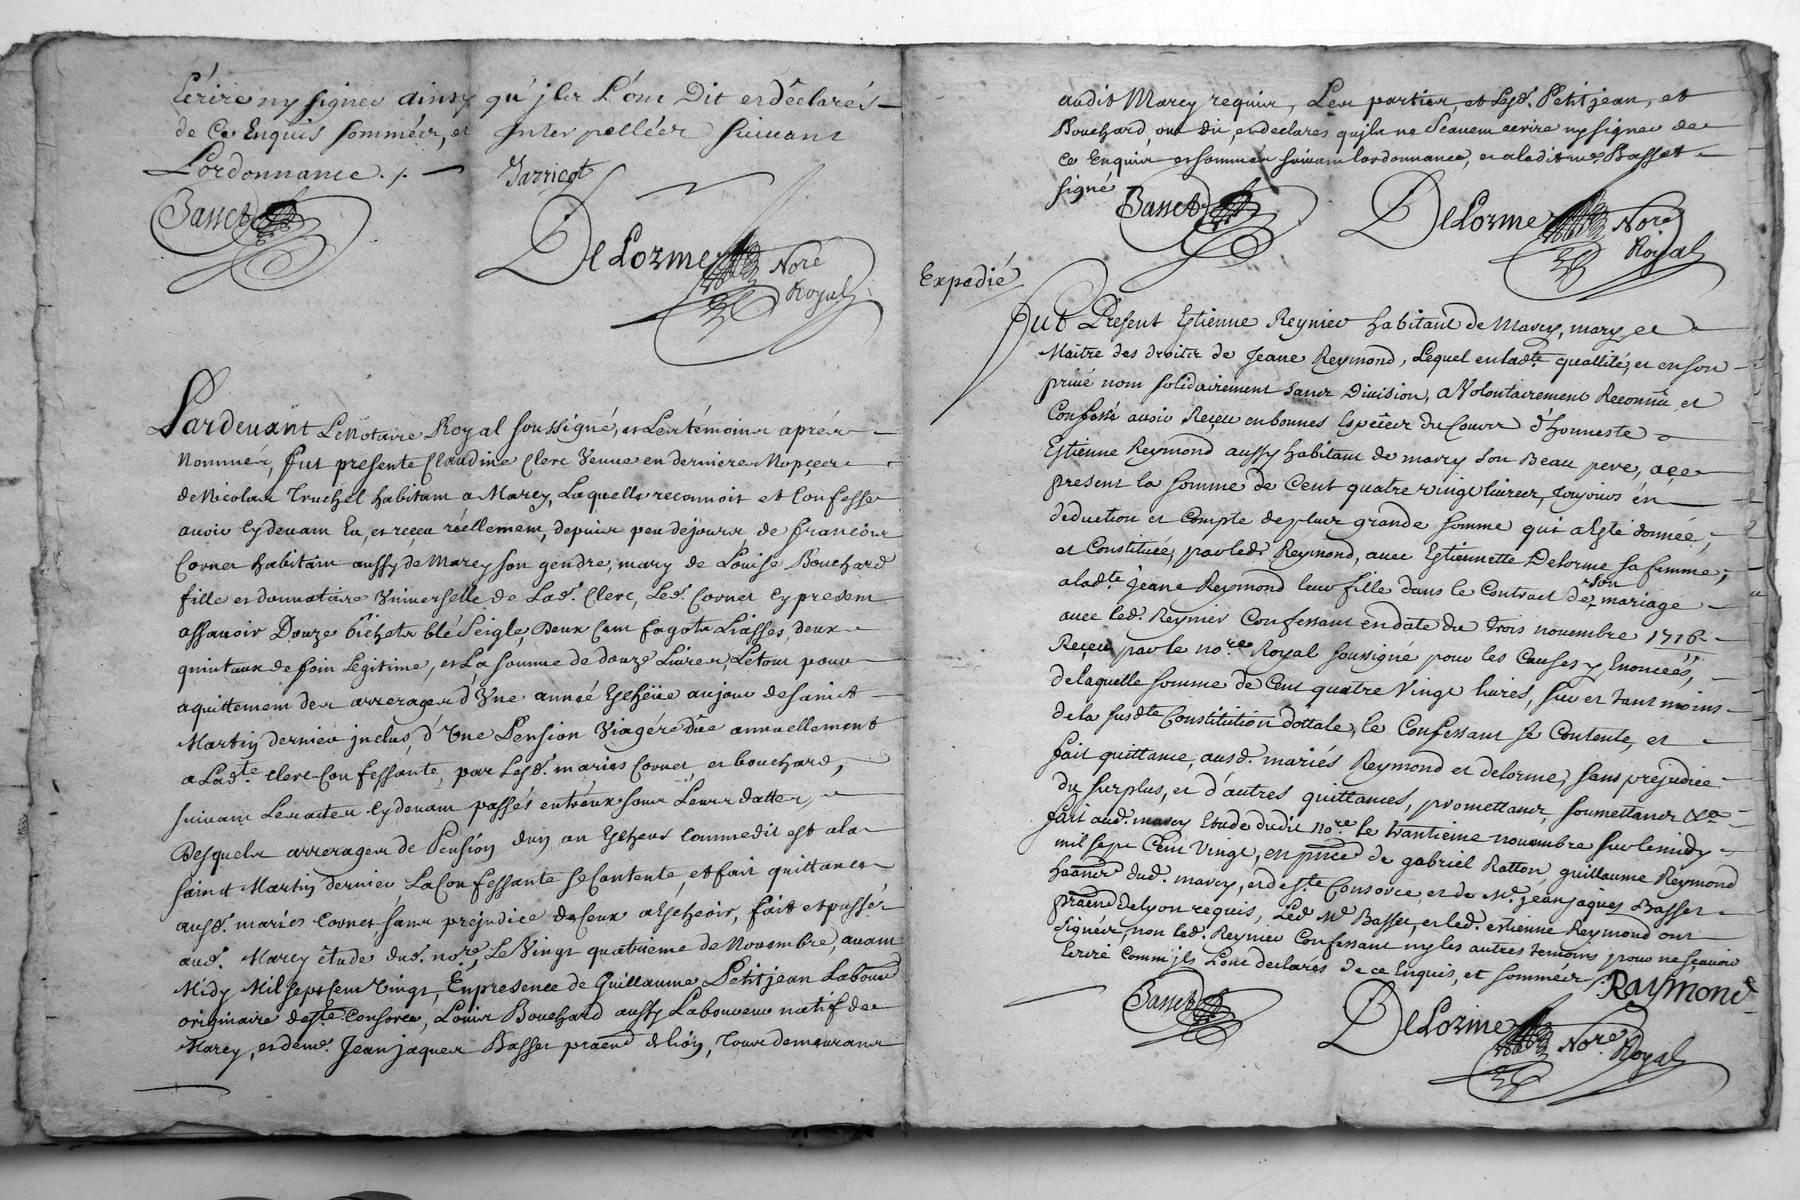 Ecrire ny signer ainsy qu'jls L'ont Dit et déclarés
de Ce Enquis sommés, et Interpellées suivant
L'ordonnance ./.
Jarricot
Basset
DeLorme Nore
Royal
Pardevant Le Notaire Royal soussigné, et Les témoins aprés
Nommés, fut presente Claudine Clerc Veuve en dernieres Nopçes
de Nicolas Truchet habitant a Marcy, Laquelle reconnoit et Confesse
avoir Cydevant Eu, et reçeu réellement, depuis peu de jours de françois
Cornet habitant aussy de Marcy son gendre, mary de Louise Bouchard
fille et donnataire Vniverselle de Lad. Clerc, Led. Cornet Cy present
assavoir Douze bichets blé Seigle, Deux Cent fagots Liasses, deux
quintaux de foin Legitime, et La somme de douze Livres, Le tout pour
aquittement des arrerages d'Vne année Escheüe au jour de saint
Martin dernier jnclus, d'Vne Pension Viagére Düe annuellement
a Ladte. Clerc Confessante, par Lesd. mariés Cornet, et bouchard,
suivant Les actes Cydevant passés entréux sous Leurs dattes,
Desquels arrerages de Pension dun an Escheus Comme dit est a la
saint Martin dernier La Confessante se Contente, et fait quittance
ausd. mariés Cornet sans prejudice de Ceux a Escheoir, fait et passé
aud. Marcy étude dud. nore., Le Vingt quatrieme de Novembre, avant
Midy Mil sept Cent Vingt, En presence de Guillaume Petitjean Laboureur
originaire de Ste. Consorce, Louis Bouchard aussy Laboureur natif de
Marcy, et de me. Jean jaques Basset praend de lion, Tous demeurant
audit Marcy requis, Les parties, et Lesd. Petitjean, et
Bouchard, ont dit, et declarés qu'jls ne Scavent ecrire ny signer de
Ce Enquis et sommés suivant lordonnance, et a ledit me. Basset
signé
Basset
DeLorme Nore
Royal
Expedié
Fut Present Estienne Reynier habitant de Marcy, mary et
Maitre des droits de Jeane Reymond, Lequel en ladte. quallité, et en son
privé nom solidairement sans Division, a Volontairement Reconnû et
Confessé avoir Reçeu en bonnes Espéces du Cours d'honneste
Estienne Reymond aussy habitant de marcy son Beau pere, a ce
present la somme de Cent quatre vingt livres, toujours en
deduction et Compte de plus grande somme qui a Esté donnée,
et Constituée, par led. Reymond, avec Estiennette Delorme sa femme,
a ladte. Jeane Reymond leur fille dans le Contract de son mariage
avec led. Reynier Confessant en date du trois novembre 1716
Reçeu par le nore. Royal soussigné pour les Causes y Enoncées,
de laquelle somme de Cent quatre Vingt livres, sur et tant moins
de la susdte Constitution dottale, le Confessant se Contente, et
fait quittance, ausd. mariés Reymond et delorme, sans prejudice
du surplus, et d'autres quittances, promettans, soumettans &a.
fait aud. marcy Etude dudit nore. le trantieme novembre sur le midy
mil sept Cent Vingt, en pnce de gabriel Ratton, guillaume Reymond
haans dud. marcy, et de Ste. Consorce, et de Me. jean jaques Basset
praend De lyon requis, Led. Me. Basset, et led. estienne Reymond ont
signés, non led. Reynier Confessant ny les autres temoins pour ne sçavoir
Ecrire Comm'jls L'ont declarés de ce Enquis, et sommés ./.
Raymond
Basset
DeLorme Nore
Royal